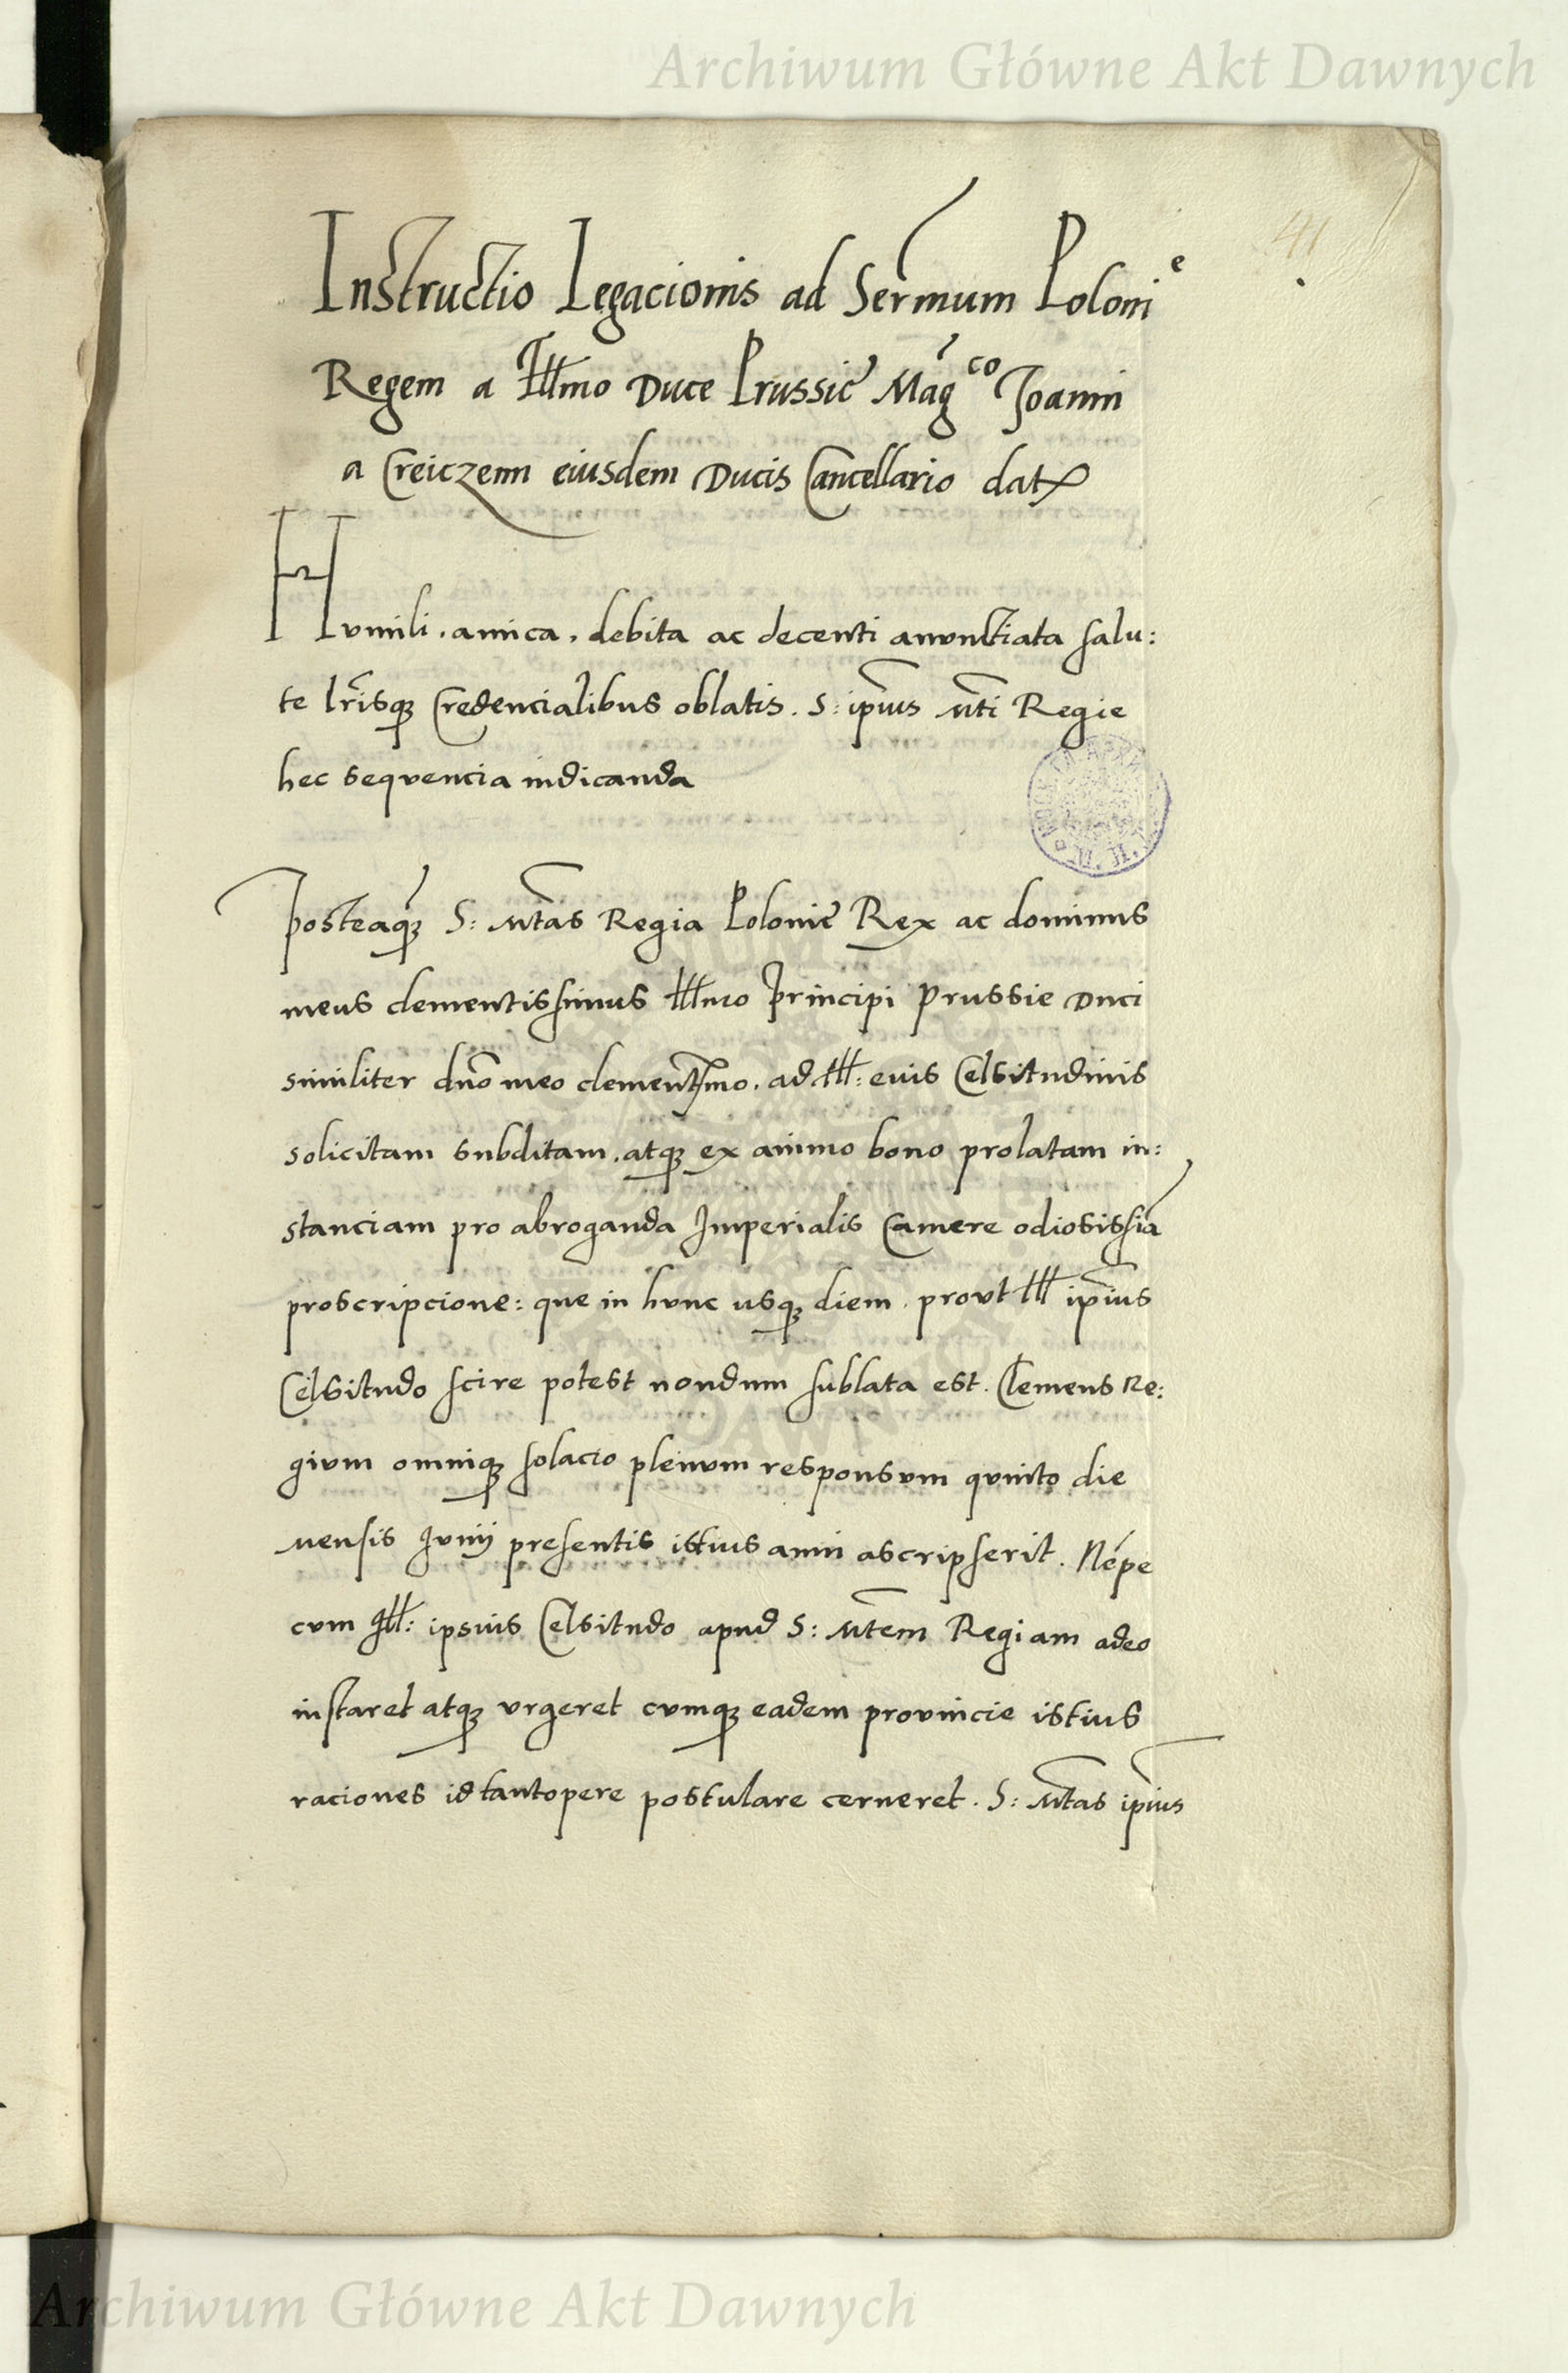 Archiwum Główne Akt Dawnych
41
Instructio Legacionis ad Sermum Polonie
Regem a Illmo Duce Prussie Magco Joanni
a Creiczenn eiusdem Ducis Cancellario dat
Humili, amica, debita ac decenti anuntiata salu:
te lrisque Credencialibus oblatis. S: ipius Mti Regie
hec sequencia indicanda
Posteaque S: Mtas Regia Polonie Rex ac dominus
meus clementissimus Illmo Principi Prussie Duci
similiter dno meo clementmo. ad Ill: euis Celsitudinis
solicitam subditam, atque ex animo bono prolatam in:
stanciam pro abroganda Imperialis Camere odiosissia
proscripcione: que in hunc usque diem, prout Ill ipius
Celsitudo scire potest nondum sublata est. Clemens Re:
gium omnique solacio plenum responsum quinto die
mensis Junij presentis istius anni ascripserit. Nepe
cum Ill: ipsius Celsitudo apud S: Mtem Regiam adeo
instaret atque urgeret cumque eadem prouincie istius
raciones id tantopere postulare cerneret. S: Mtas ipius
Archiwum Główne Akt Dawnych